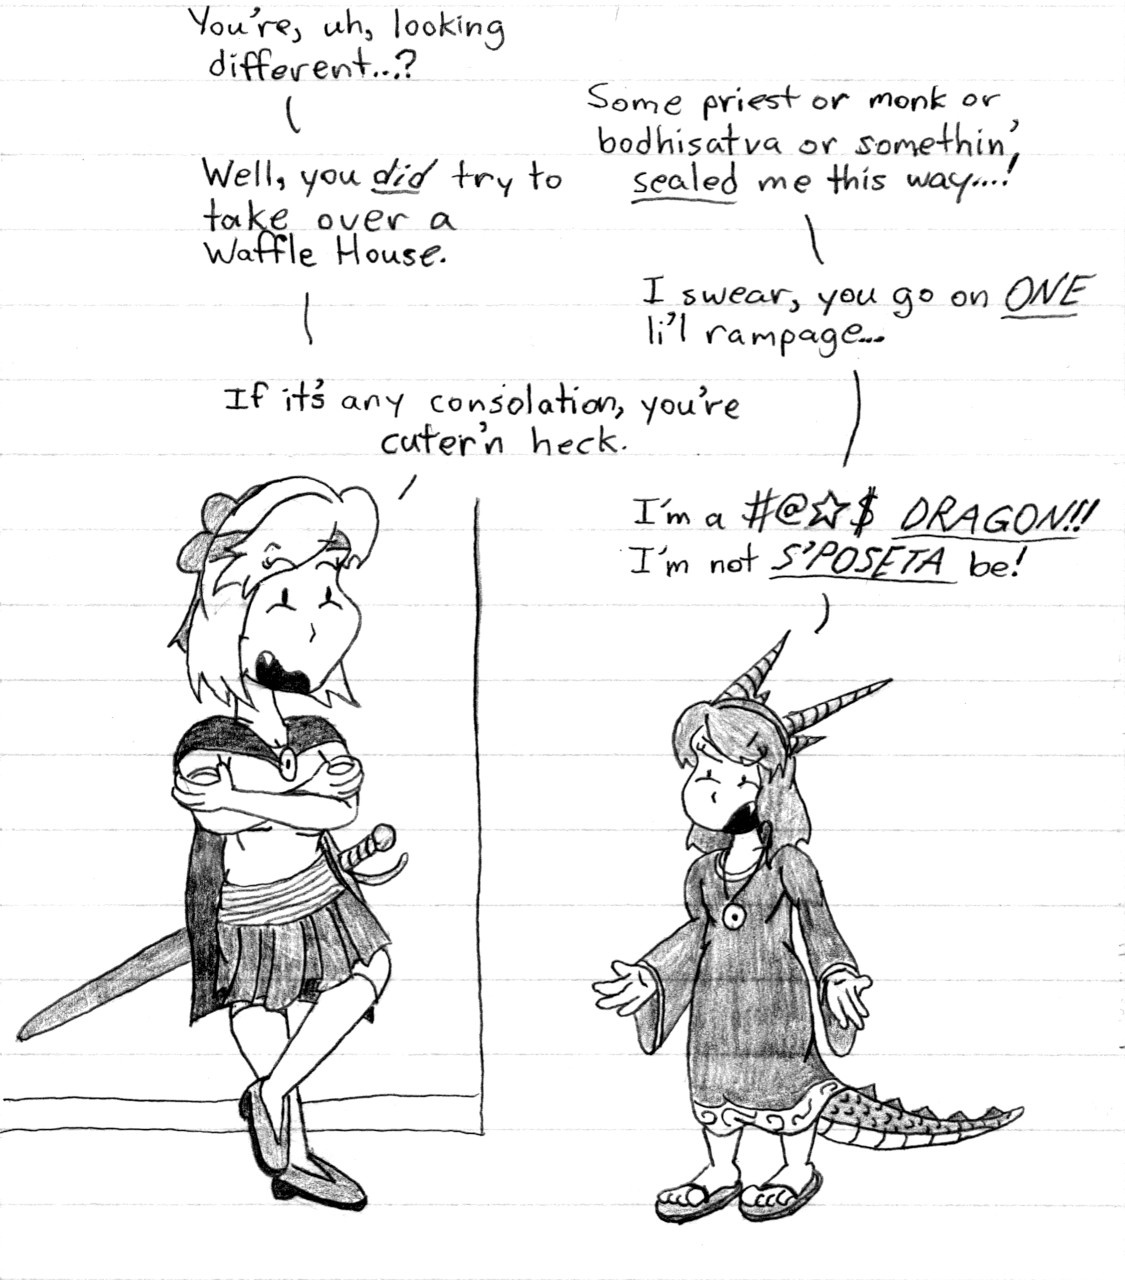 You're, uh, looking
different...?
Some priest or monk or
bodhisatva or somethin',
sealed me this way....!
Well, you did try to
take over a
Waffle House.
I swear, you go on ONE
li'l rampage...
If it's any consolation, you're
cuter'n heck.
I'm a #@☆$ DRAGON!!!
I'm not S'POSETA be!